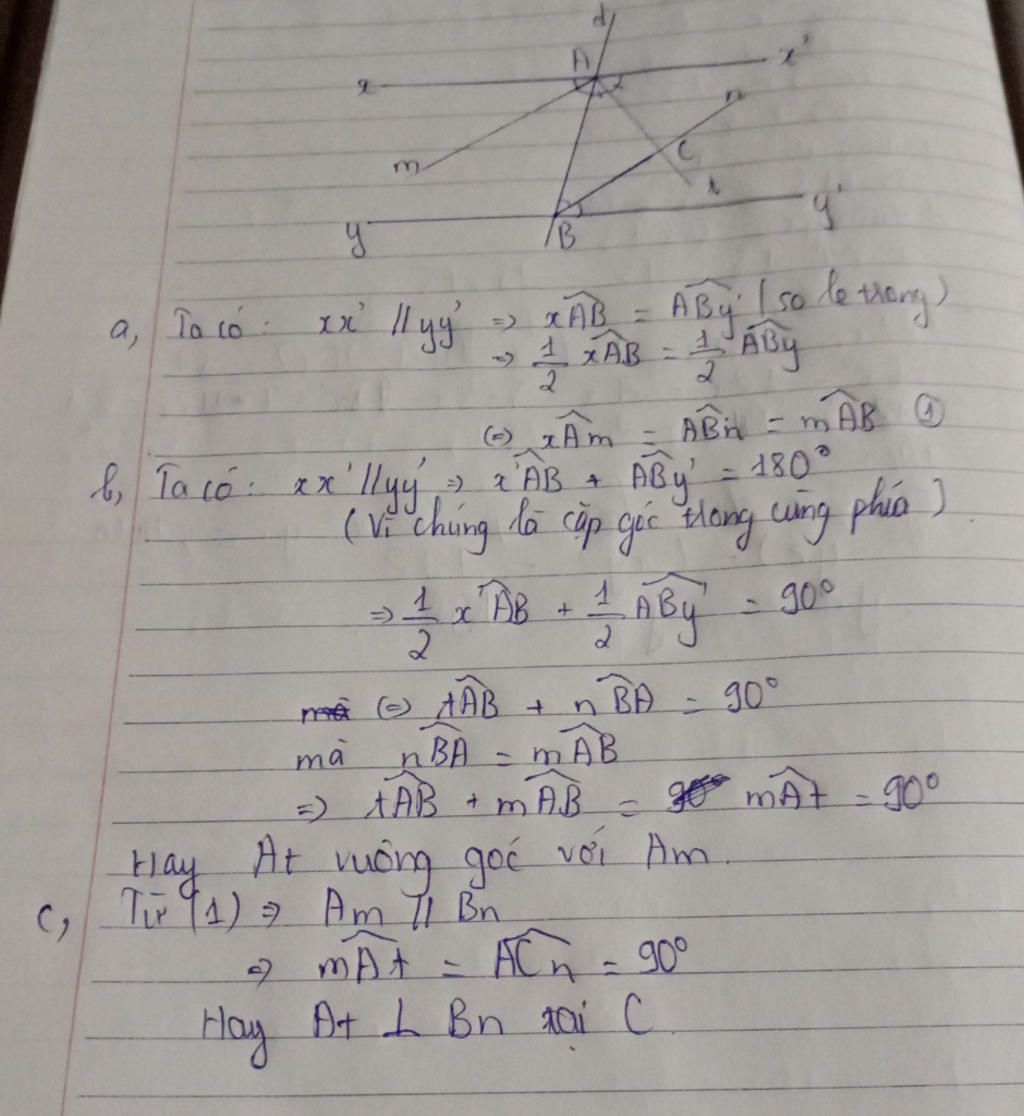 d
A
x
x'
n
m
C
t
y
B
y'
a, Ta có : xx' // yy' => xÂB = ABy' (so le trong)
=> 1/2 xAB = 1/2 ABy
(=) xAm = ABn = mAB ①
b, Ta có : xx' // yy' => x'AB + ABy' = 180°
(Vì chúng là cặp góc trong cùng phía)
=> 1/2 x'AB + 1/2 ABy' = 90°
(=) tAB + nBA = 90°
mà nBA = mAB
=> tAB + mAB = mAt = 90°
Hay At vuông góc với Am.
c, Từ (1) => Am // Bn
=> mAt = ACn = 90°
Hay At ⊥ Bn tại C